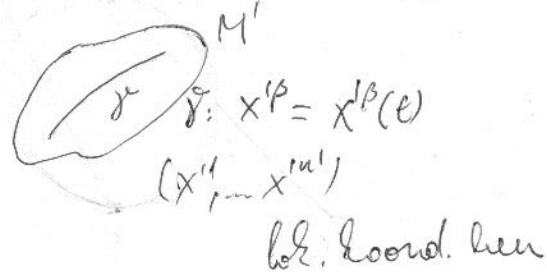 M'
γ γ: x'^β = x'^β(t)
(x'^1, ... x'^n')
lok. koord.